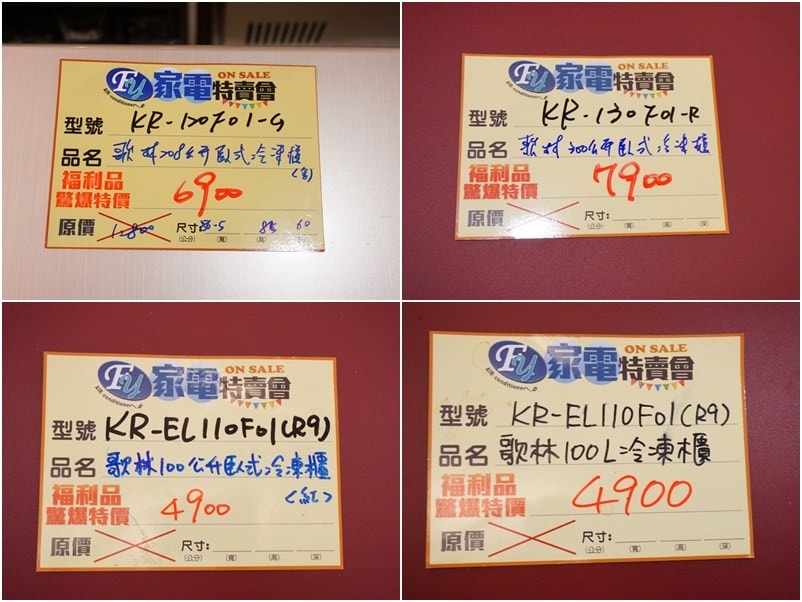 Fy 家電特賣會 ON SALE
Air conditioner
型號 KR-120F01-G
品名 歌林208公升臥式冷凍櫃
福利品
驚爆特價 6900
原價 12800 尺寸: 85 60
(公分) (寬) (高) (深)
Fy 家電特賣會 ON SALE
Air conditioner
型號 KR-130F01-R
品名 歌林300公升臥式冷凍櫃
福利品
驚爆特價 7900
原價 尺寸:
(公分) (寬) (高) (深)
Fy 家電特賣會 ON SALE
Air conditioner
型號 KR-EL110F01(R9)
品名 歌林100公升臥式冷凍櫃
(紅)
福利品
驚爆特價 4900
原價 尺寸:
(公分) (寬) (高) (深)
Fy 家電特賣會 ON SALE
Air conditioner
型號 KR-EL110F01(R9)
品名 歌林100L冷凍櫃
福利品
驚爆特價 4900
原價 尺寸:
(公分) (寬) (高) (深)